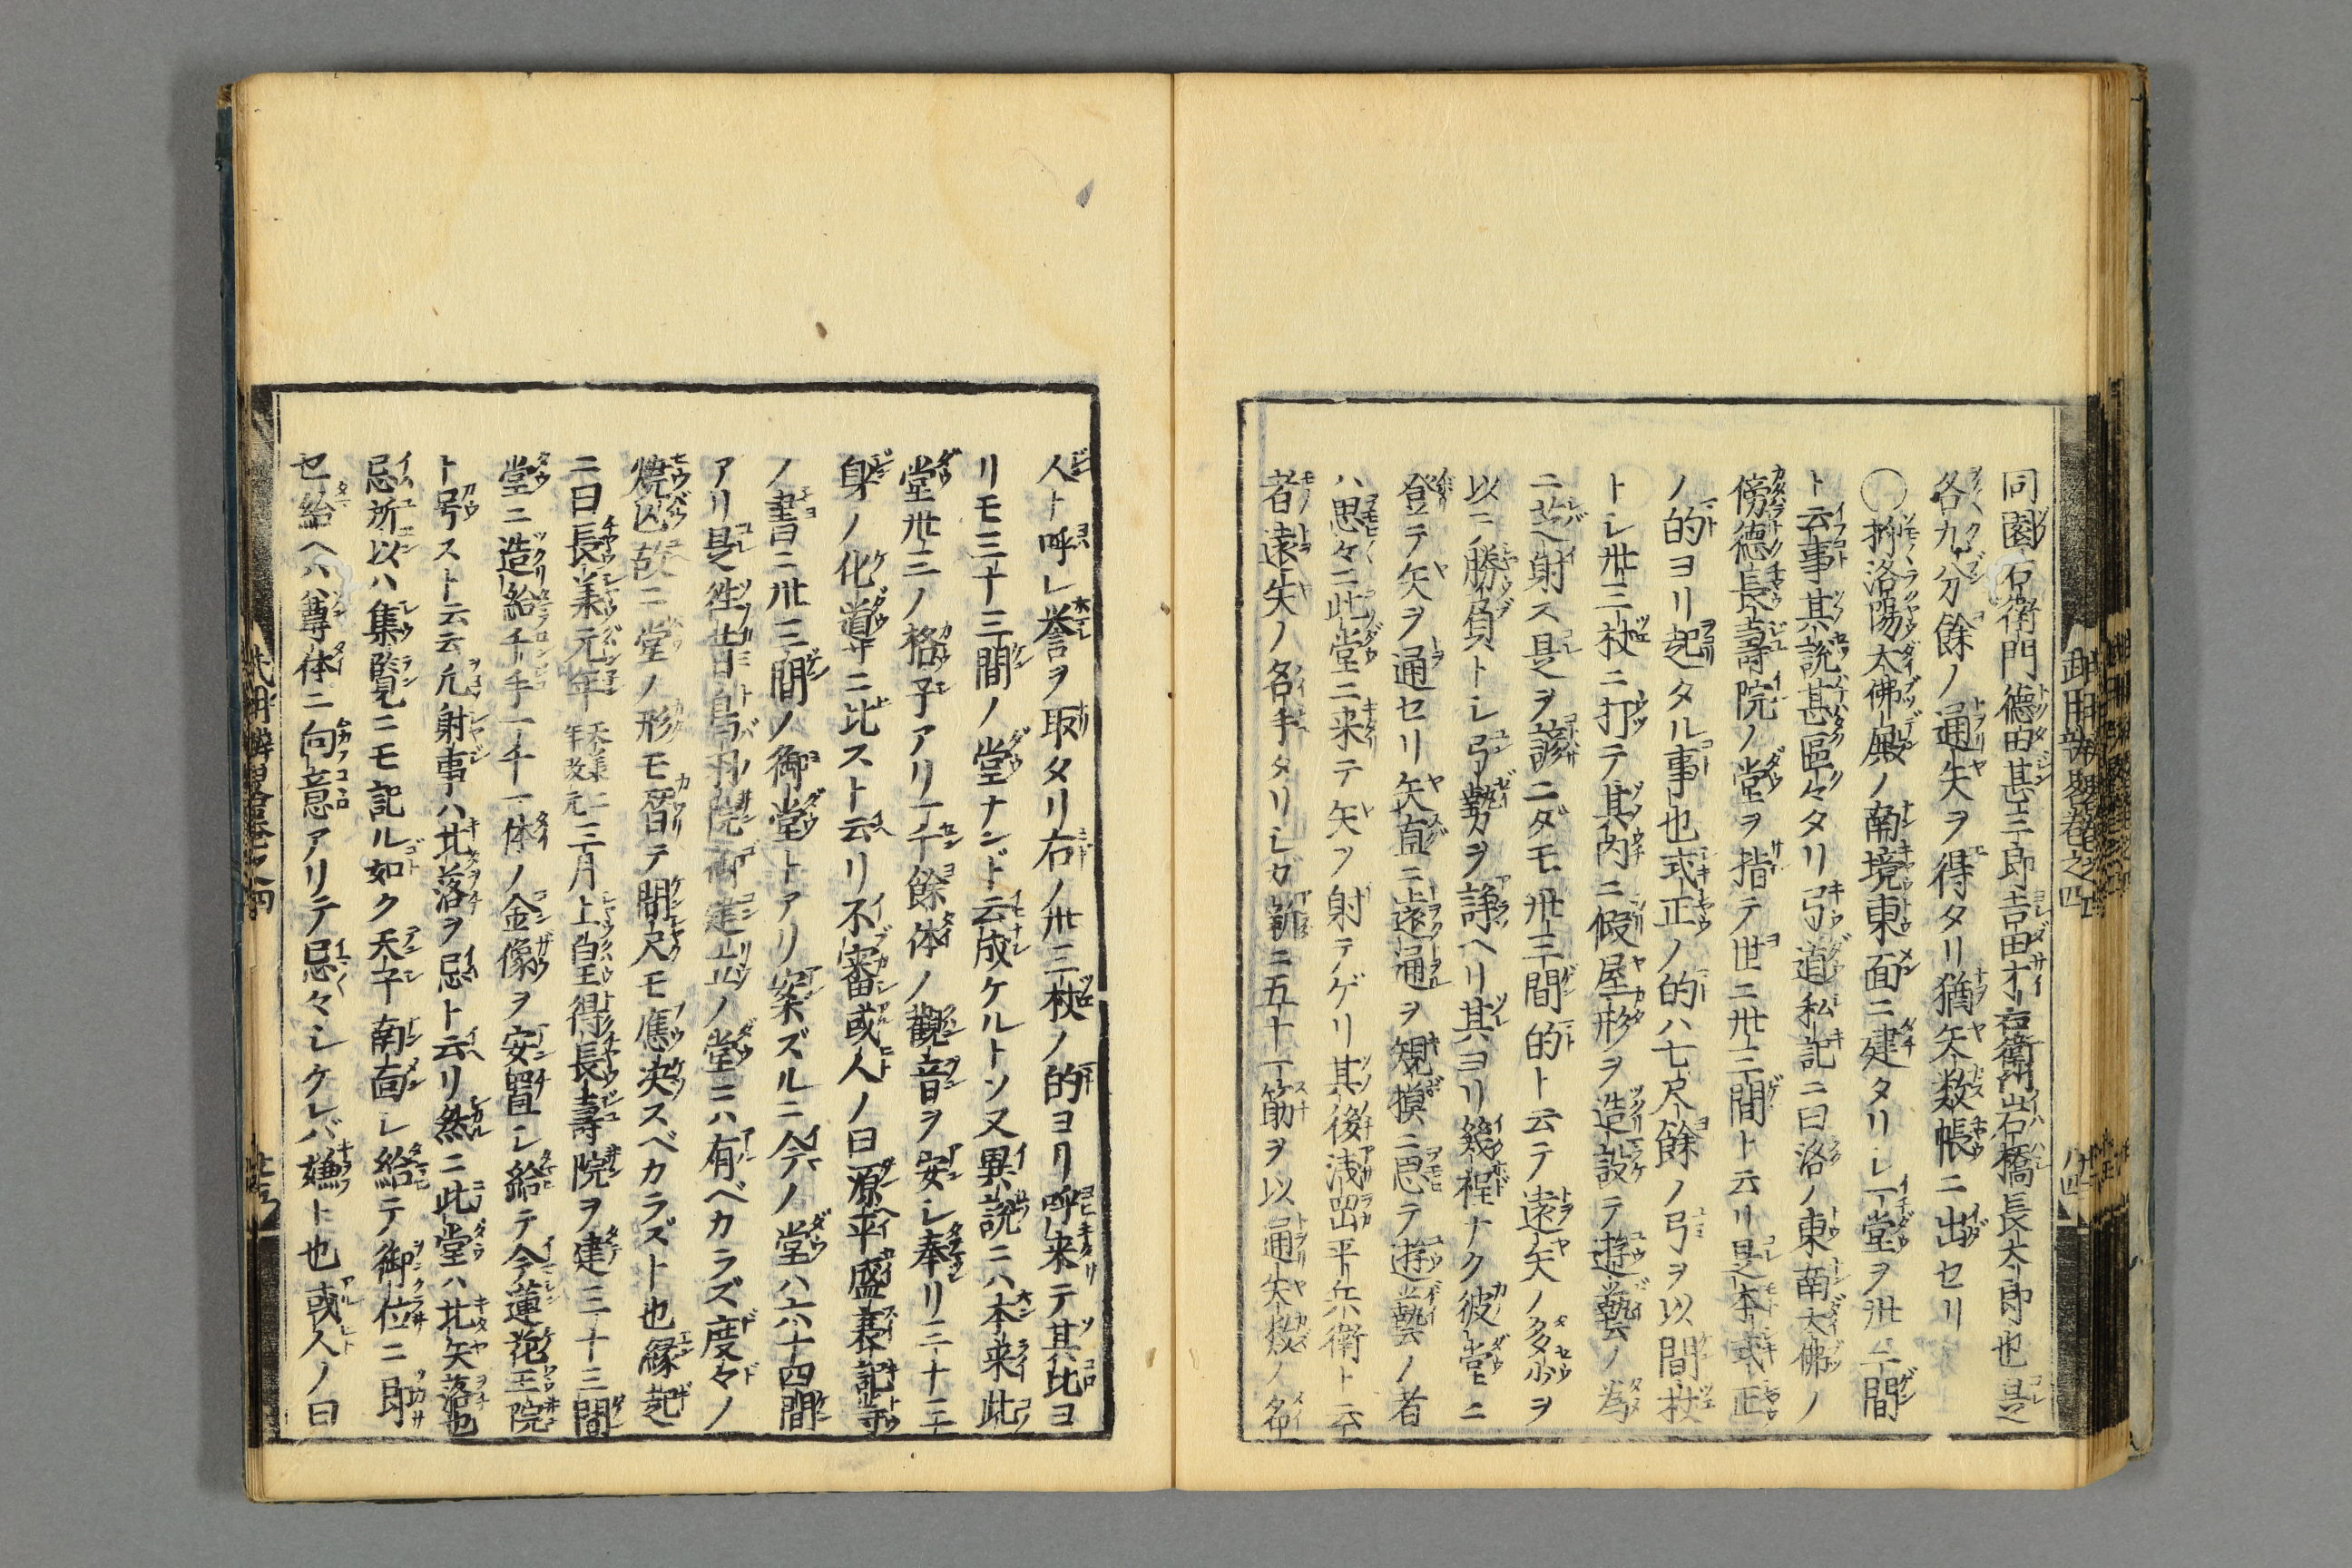 同園右衛門德田甚三郎吉田才右衛門岩橋長太郎也是
各九分餘ノ通矢ヲ得タリ猶矢数帳ニ出セリ
○抑洛陽大佛殿ノ南境東面ニ建タリレ一堂ヲ卅三間
ト云事其説甚區々タリ弓道私記ニ曰洛ノ東南大佛ノ
傍德長壽院ノ堂ヲ指テ世ニ卅三間ト云リ是本式正
ノ的ヨリ起タル事也式正ノ的ハ七尺餘ノ弓ヲ以間杖
トレ卅三杖ニ打テ其内ニ假屋形ヲ造設テ遊藝ノ為
ニ並ヘ射ス是ヲ諺ニダモ卅三間的ト云テ遠矢ノ多少ヲ
以テ勝負トレ弓勢ヲ諍ヘリ其ヨリ幾程ナク彼堂ニ
登テ矢ヲ通セリ矢直ニ遠通ヲ規摸ニ思テ遊藝ノ者
ハ思々ニ此堂ニ来テ矢ヲ射テゲリ其後浅岡平兵衛ト云
者遠矢ノ名手タリレガ新ニ五十一筋ヲ以通矢数ノ名
人ト呼レ誉ヲ取タリ右ノ卅三杖ノ的ヨリ呼来テ其比ヨ
リモ三十三間ノ堂ナンド云成ケルトソ又異説ニハ本来此
堂卅三ノ格子アリ一千餘体ノ觀音ヲ安レ奉リ三十三
身ノ化導ニ比スト云リ不審或人ノ曰源平盛衰記等
ノ書ニ卅三間ノ御堂トアリ案ズルニ今ノ堂ハ六十四間
アリ是徃昔鳥羽院御建立ノ堂ニハ有ベカラズ度々ノ
燒亡故ニ堂ノ形モ替テ間尺モ應決スベカラズト也縁起
ニ曰長兼元年天兼二年改元三月上皇得長壽院ヲ建三十三間
堂ニ造給千手一千一体ノ金像ヲ安置レ給テ今蓮花王院
ト号スト云云凢射事ハ北落ヲ忌ト云リ然ニ此堂ハ北矢落也
忌所以ハ集覧ニモ記ル如ク天子南面レ給テ御位ニ即
セ給ヘハ尊体ニ向意アリテ忌々レケレバ嫌ト也或人ノ曰